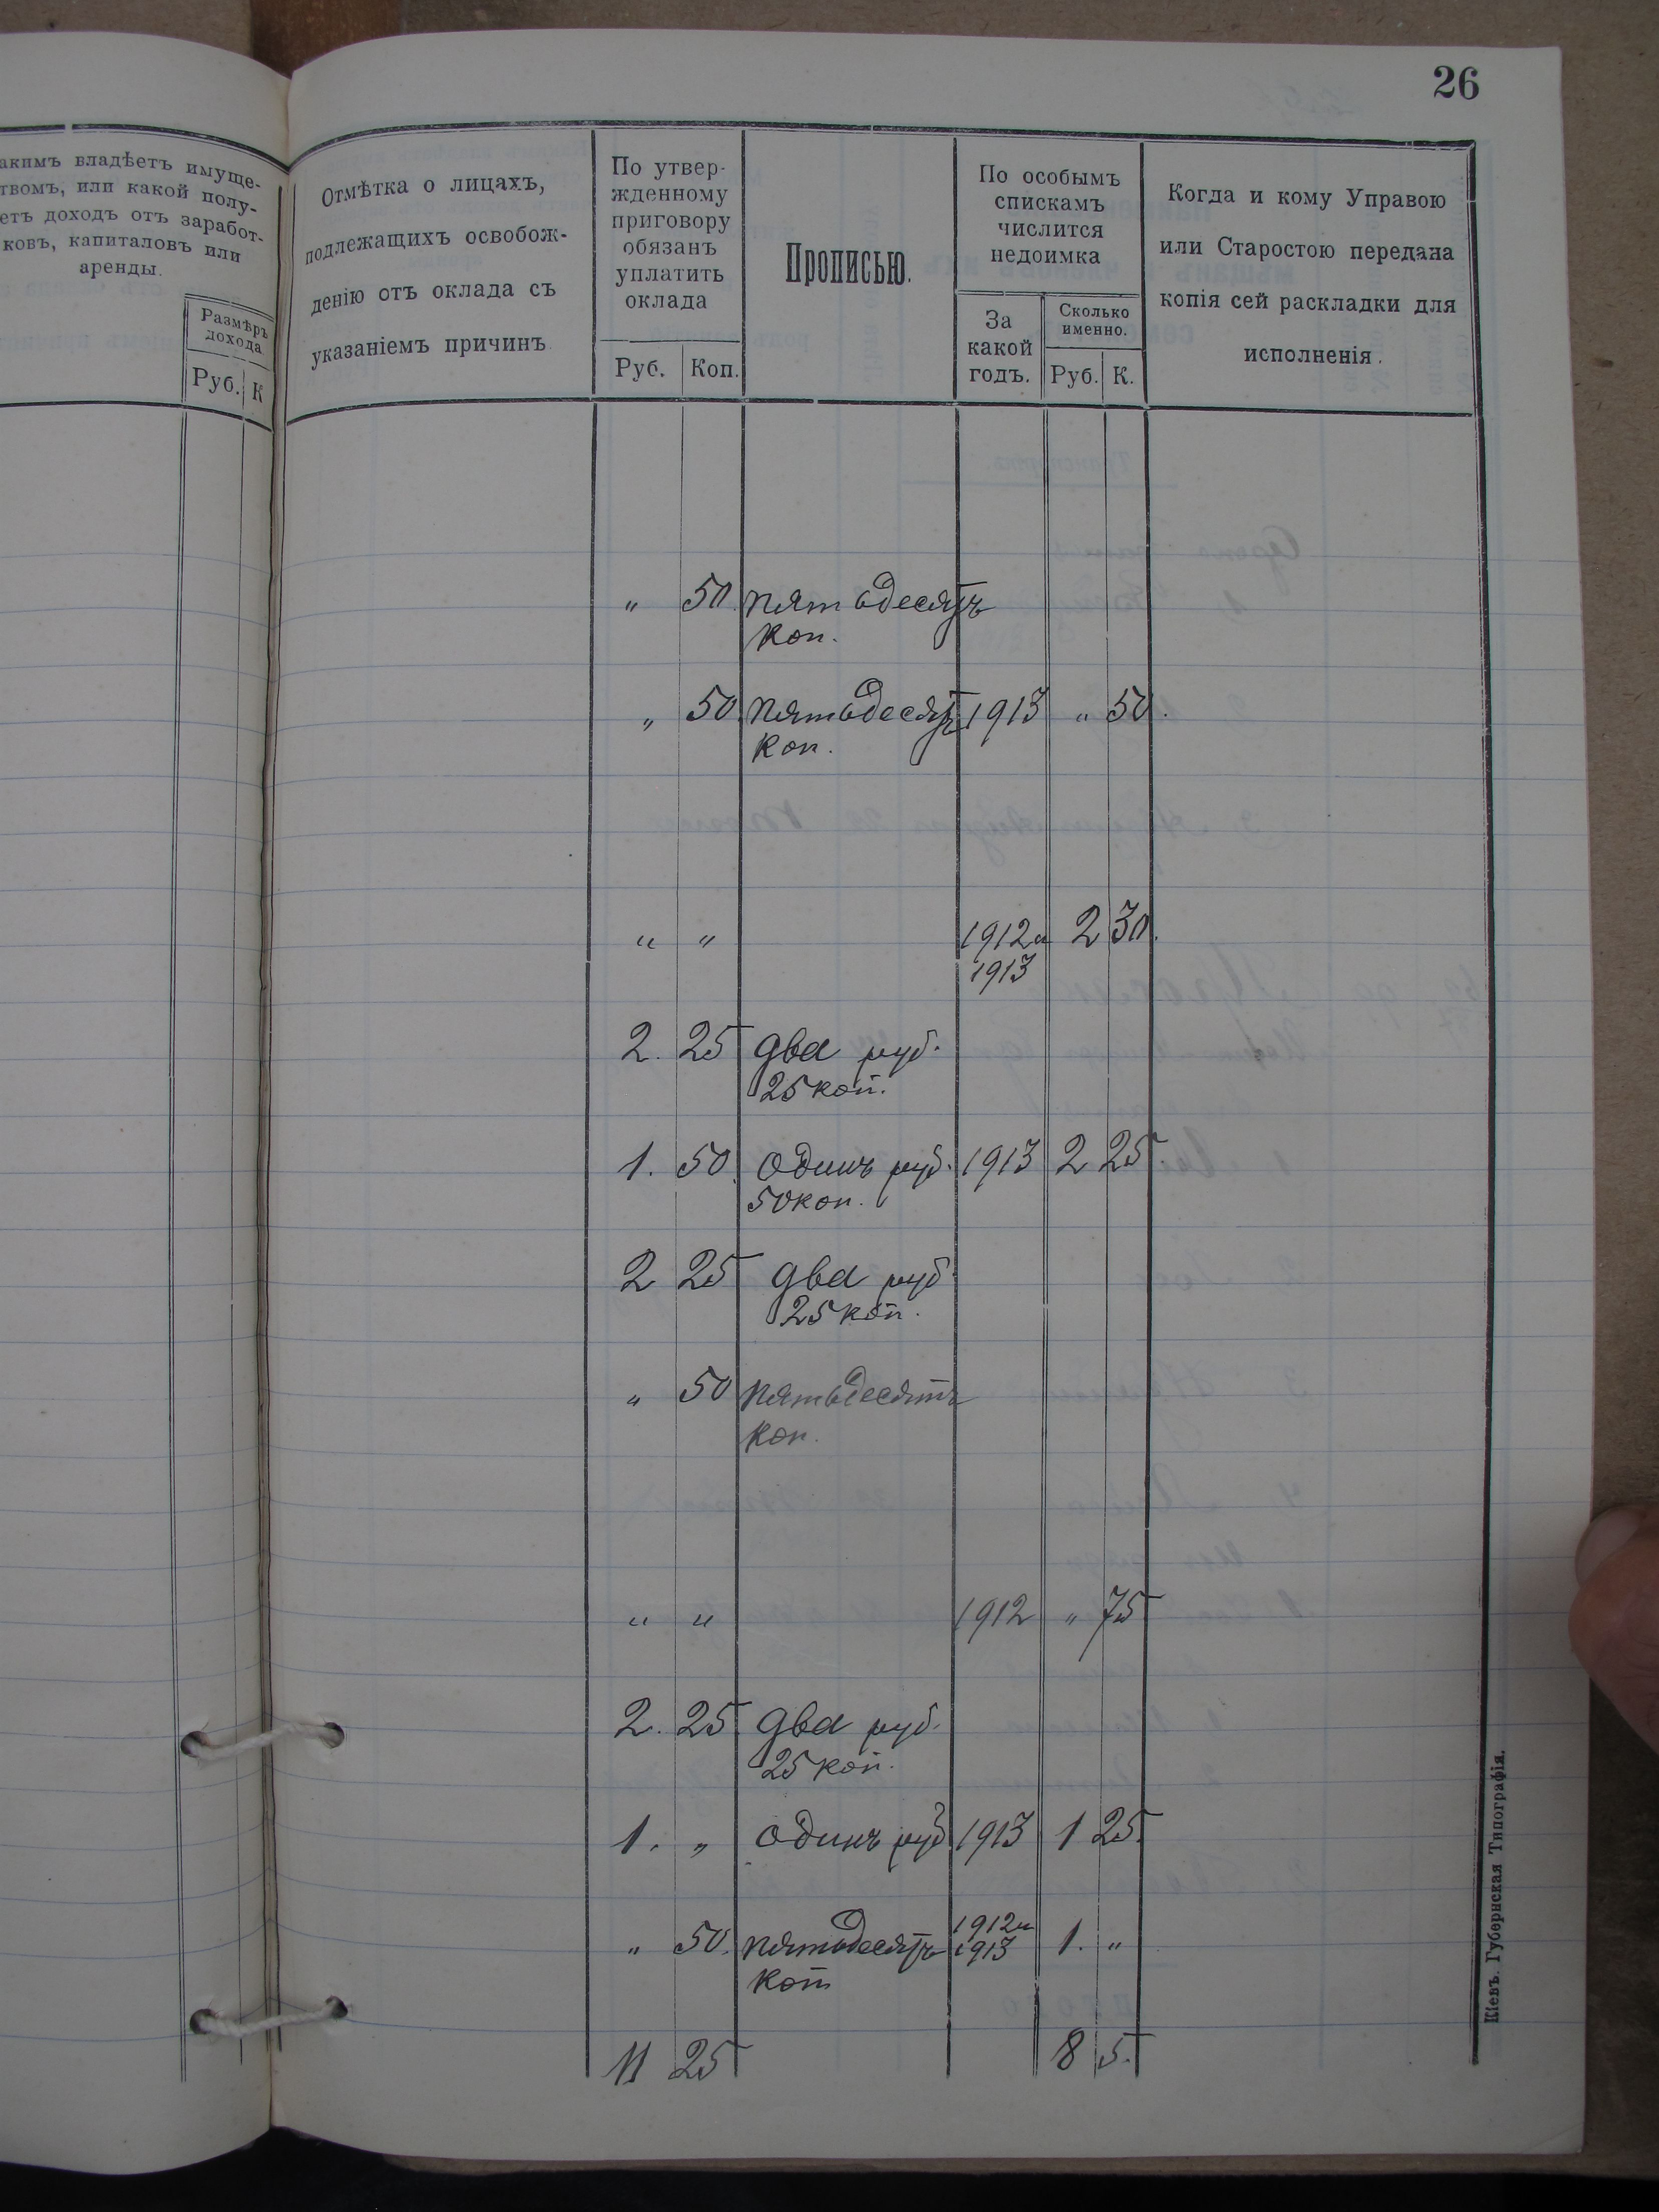 26
акимъ владѣетъ имуще-
твомъ, или какой полу-
етъ доходъ отъ заработ-
ковъ, капиталовъ или
аренды.
Размѣръ
дохода
Руб. К
Отмѣтка о лицахъ,
подлежащихъ освобож-
денію отъ оклада съ
указаніемъ причинъ
По утвер-
жденному
приговору
обязанъ
уплатить
оклада
Руб. Коп.
Прописью.
По особымъ
спискамъ
числится
недоимка
За
какой
годъ.
Сколько
именно.
Руб. К.
Когда и кому Управою
или Старостою передана
копія сей раскладки для
исполненія.
„ 50 пятьдесятъ
коп.
„ 50 пятьдесятъ 1913 „ 50.
коп.
„ „ 1912 и 2 30.
1913
2. 25 два руб.
25 коп.
1. 50 одинъ руб. 1913 2 25.
50 коп.
2 25 два руб
25 коп.
„ 50 пятьдесятъ
коп.
„ „ 1912 „ 75
2. 25 два руб.
25 коп.
1. „ одинъ руб 1913 1 25.
„ 50. пятьдесятъ 1912 и 1913 1. „
коп
11 25 8 5.
Кіевъ. Губернская Типографія.